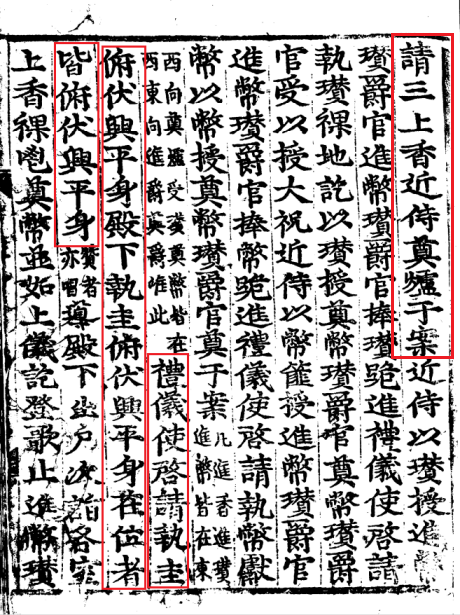 請三上香近侍奠爐于案近侍以瓚授進幣
瓚爵官進幣瓚爵官捧瓚跪進禮儀使啓請
執瓚祼地訖以瓚授奠幣瓚爵官奠幣瓚爵
官受以授大祝近侍以幣篚授進幣瓚爵官
進幣瓚爵官捧幣跪進禮儀使啓請執幣獻
幣以幣授奠幣瓚爵官奠于案凡進香進瓚進幣皆在東
西向奠爐受瓚奠幣皆在西東向進爵奠爵准此禮儀使啓請執圭
俯伏興平身殿下執圭俯伏興平身在位者
皆俯伏興平身贊者亦唱導殿下出戶次詣各室
上香祼鬯奠幣並如上儀訖登歌止進幣瓚